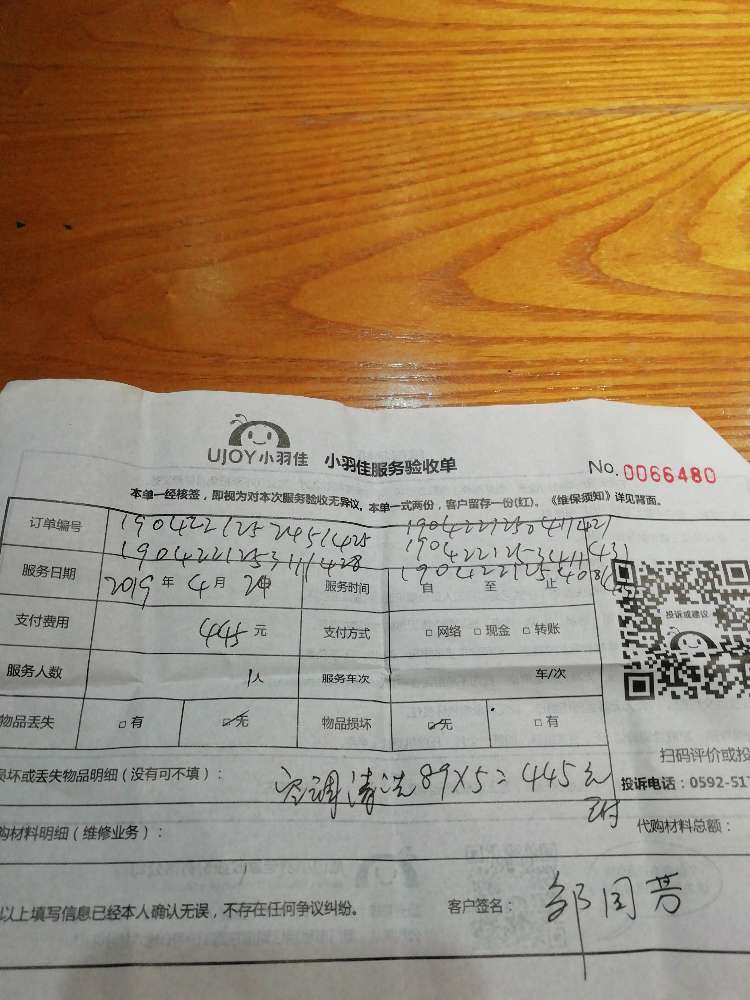 UJOY小羽佳 小羽佳服务验收单 No. 0066480
本单一经核签，即视为对本次服务验收无异议，本单一式两份，客户留存一份(红)。《维保须知》详见背面。
订单编号 190422125 19042212504
190422125311428
服务日期 2019 年 4 月 24 服务时间 自 至 止
投诉或建议
支付费用 445 元 支付方式 □ 网络 □ 现金 □ 转账
服务人数 1人 服务车次 车/次
物品丢失 □ 有 □ 无 物品损坏 □ 无 □ 有
扫码评价或投
损坏或丢失物品明细（没有可不填）： 空调清洗 89X5=445元
投诉电话：0592-517
购材料明细（维修业务）： 代购材料总额：
以上填写信息已经本人确认无误，不存在任何争议纠纷。 客户签名： 邹国芳